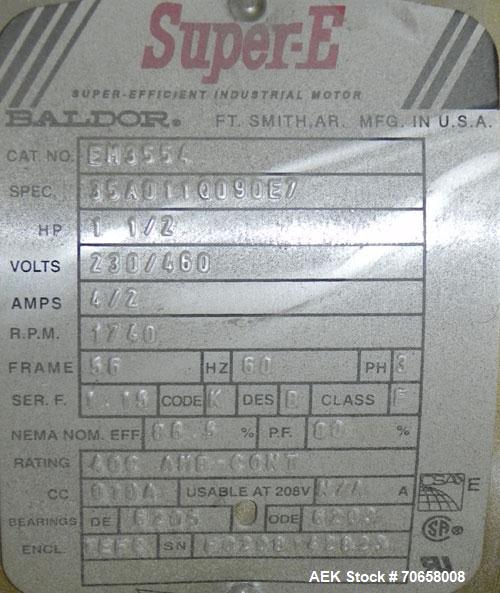 Super-E
SUPER-EFFICIENT INDUSTRIAL MOTOR
BALDOR® FT. SMITH, AR. MFG. IN U.S.A.
CAT. NO. EM3554
SPEC. 35A011Q090E7
HP 1 1/2
VOLTS 230/460
AMPS 4/2
R.P.M. 1740
FRAME 56 HZ 60 PH 3
SER. F. 1.15 CODE K DES CLASS F
NEMA NOM. EFF. % P.F. %
RATING 40C AMB-CONT
CC 010A USABLE AT 208V N/A A
BEARINGS DE 6205 ODE 6203
ENCL. TEFC SN
AEK Stock # 70658008